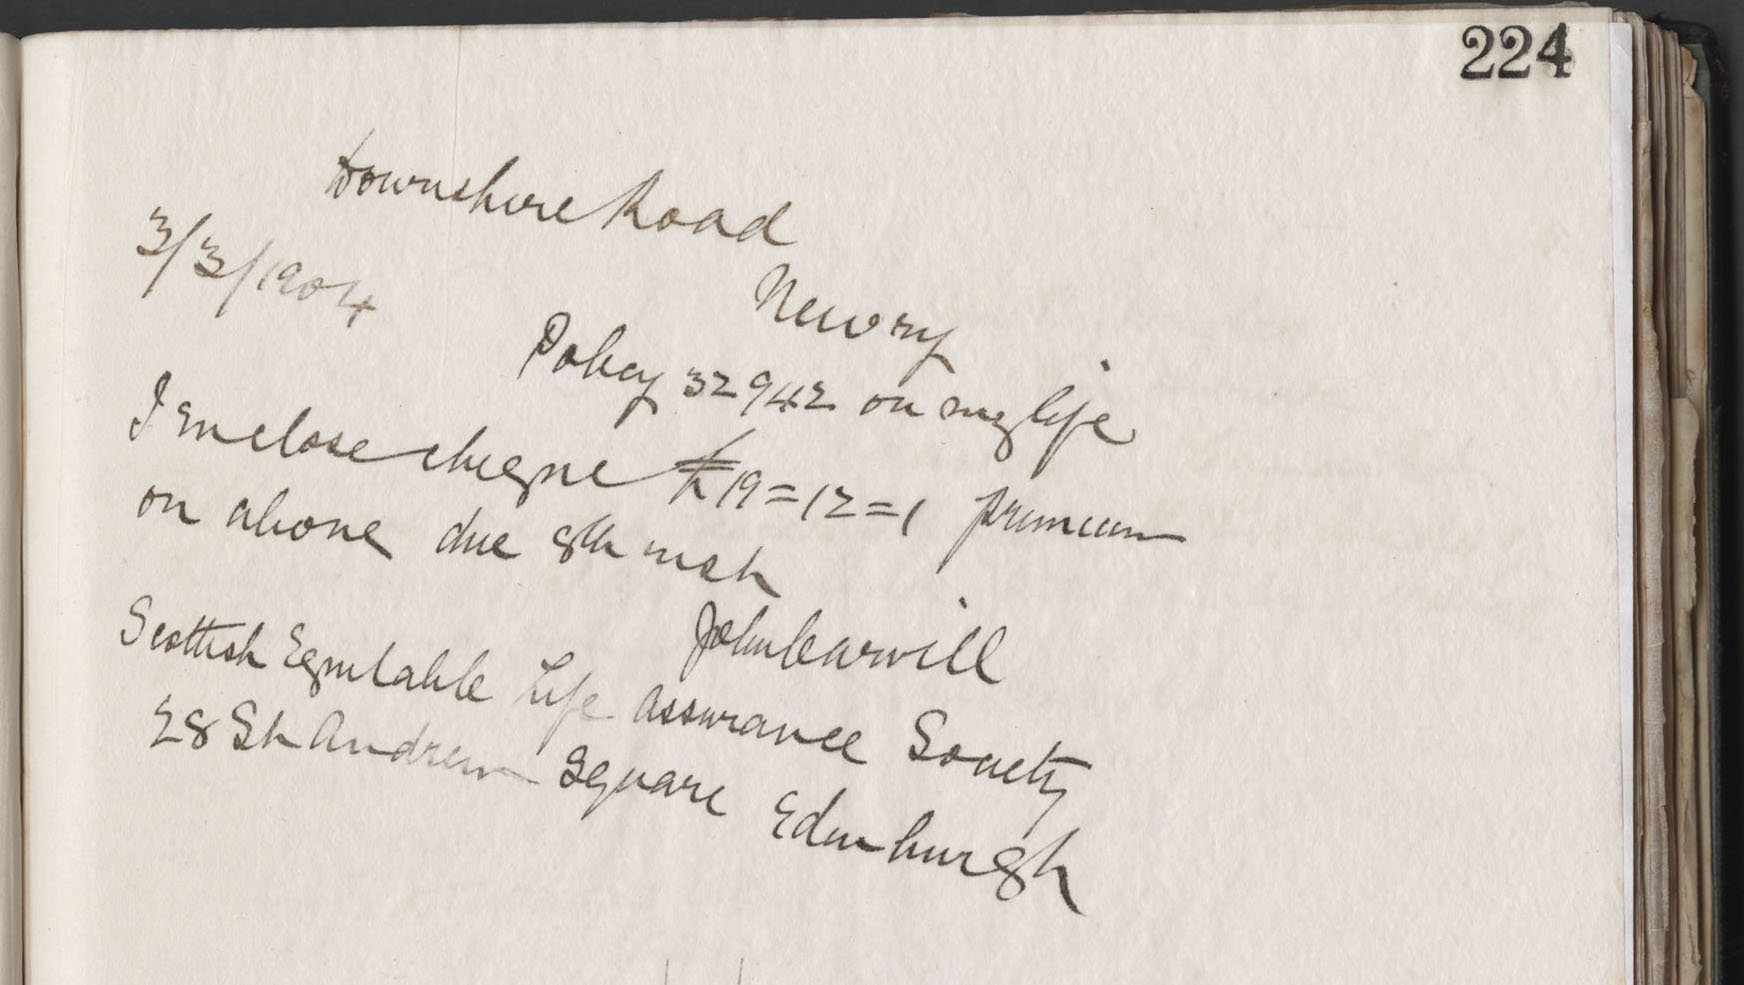 224
Downshire Road
3/3/1904
Newry
Policy 32942 on my life
I Enclose cheque £19=12=1 premium
on above due 8th inst
John Carvill
Scottish Equitable Life Assurance Society
28 St Andrew Square Edinburgh